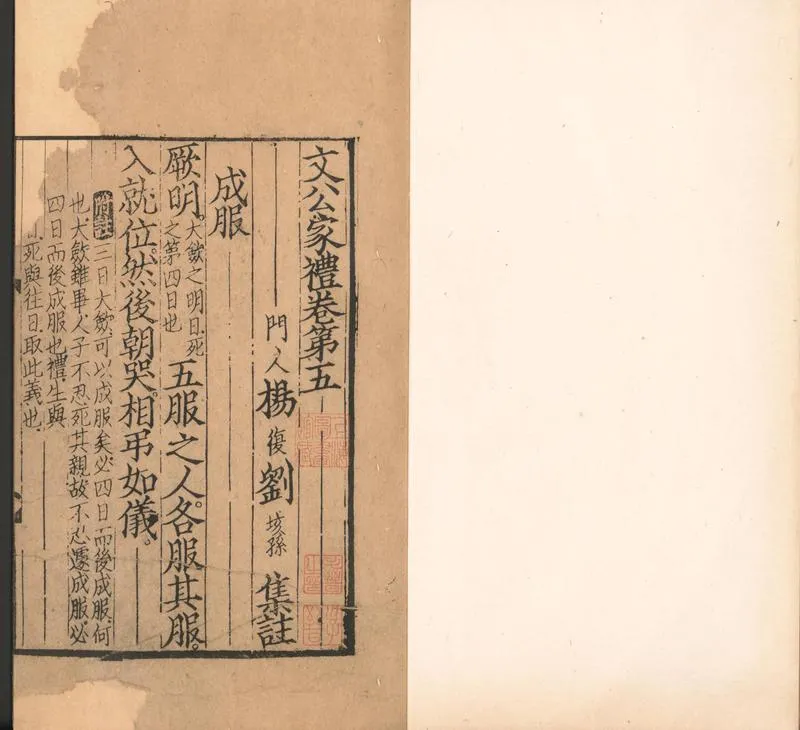 文公家禮卷第五
門人楊復劉垓孫集註
成服
厥明大歛之明日死之第四日也五服之人各服其服
入就位然後朝哭相弔如儀
三日大歛可以成服矣必四日而後成服何
也大歛雖畢人子不忍死其親故不忍遽成服必
四日而後成服也禮生與
死與往日取此義也